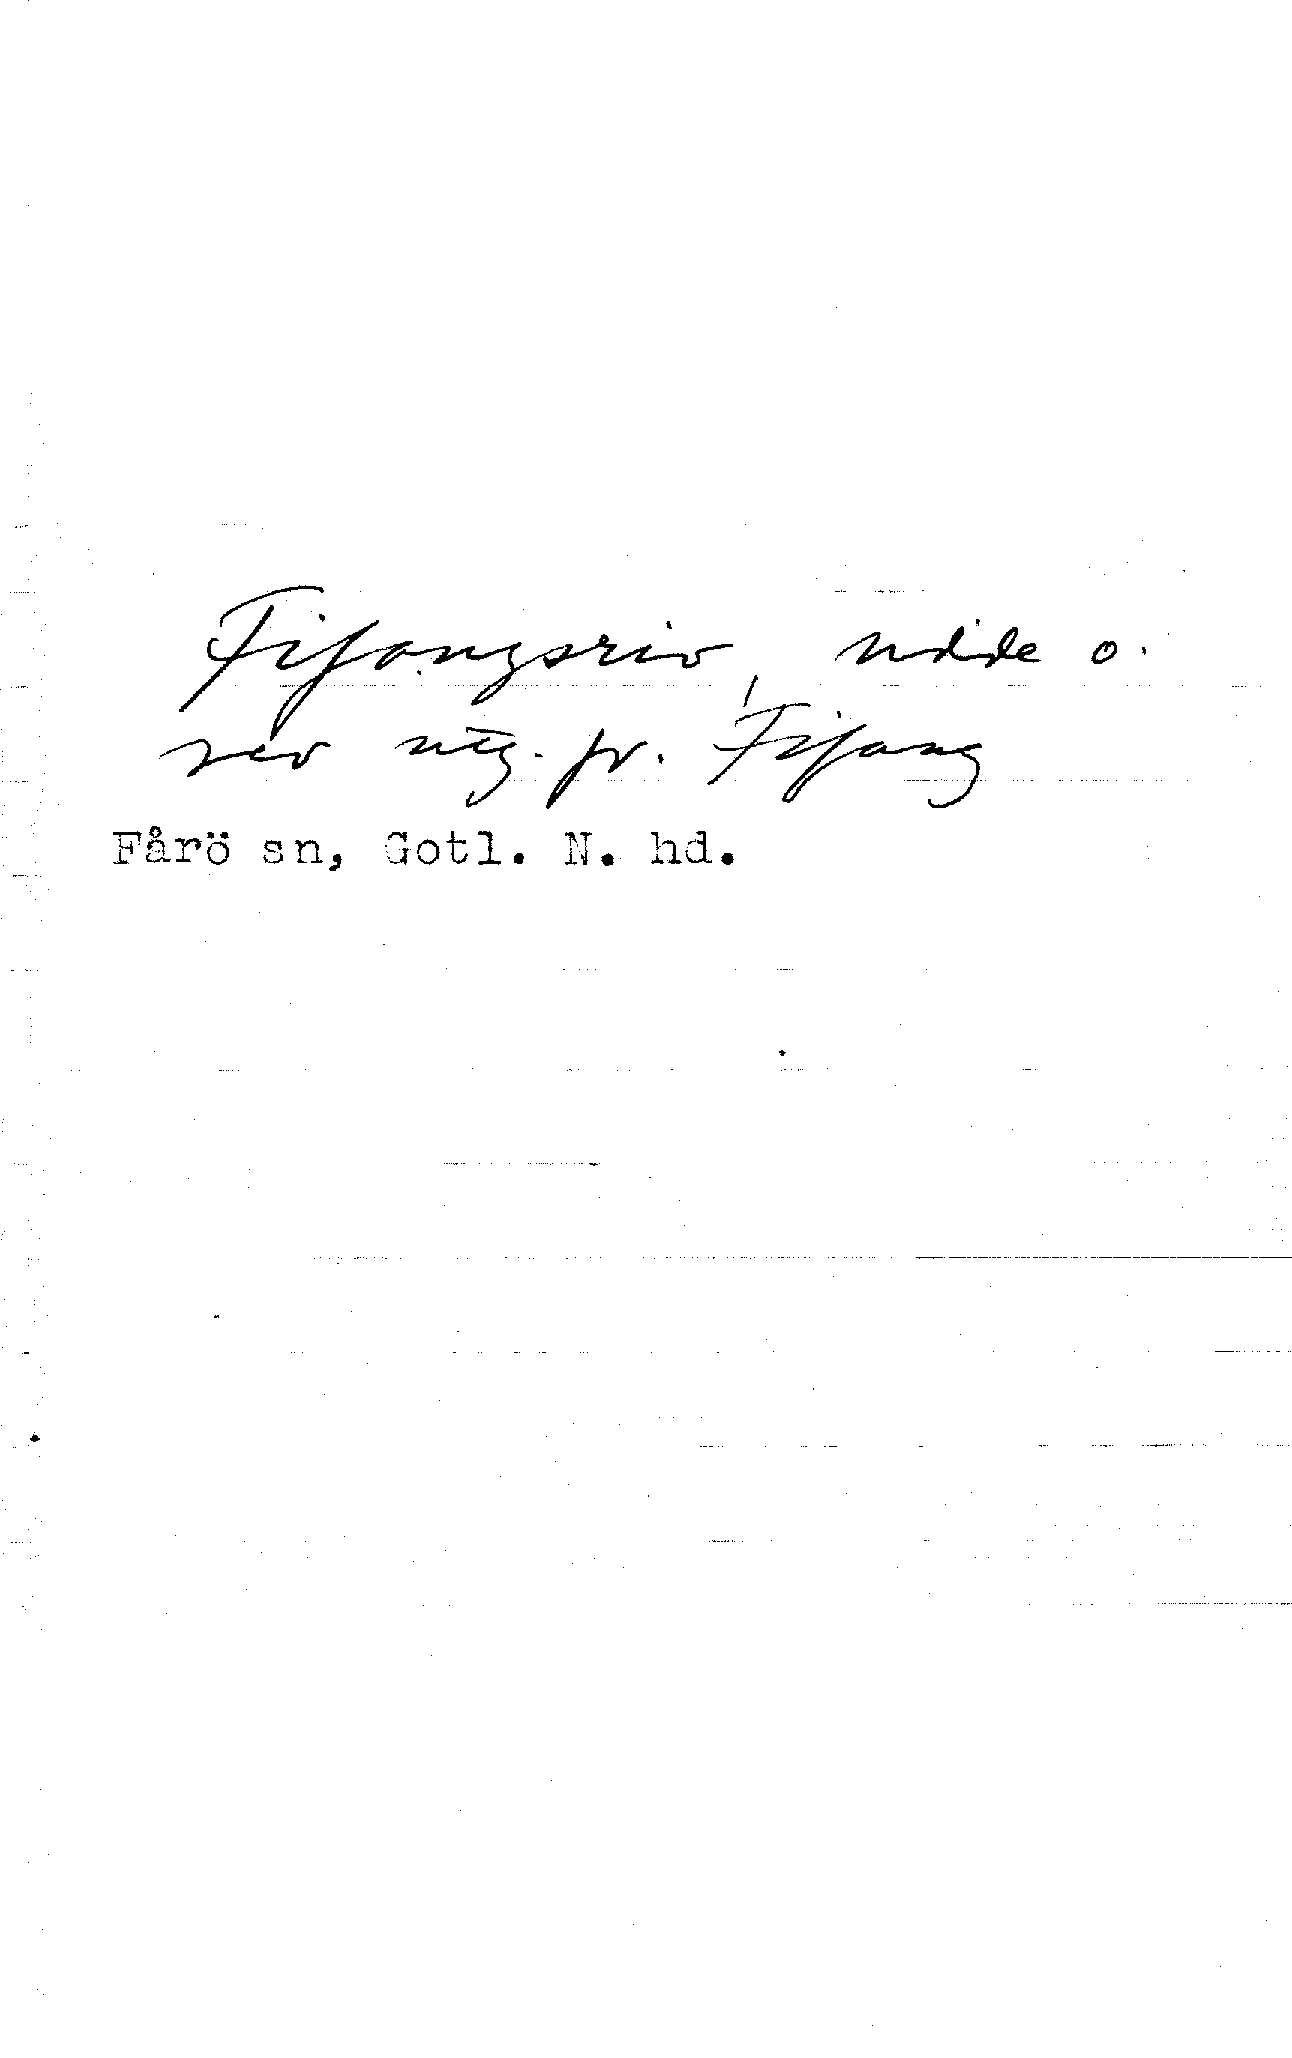 Fifangsriv, udde o.
rev utg. fr. Fifang
Fårö sn, Gotl. N. hd.